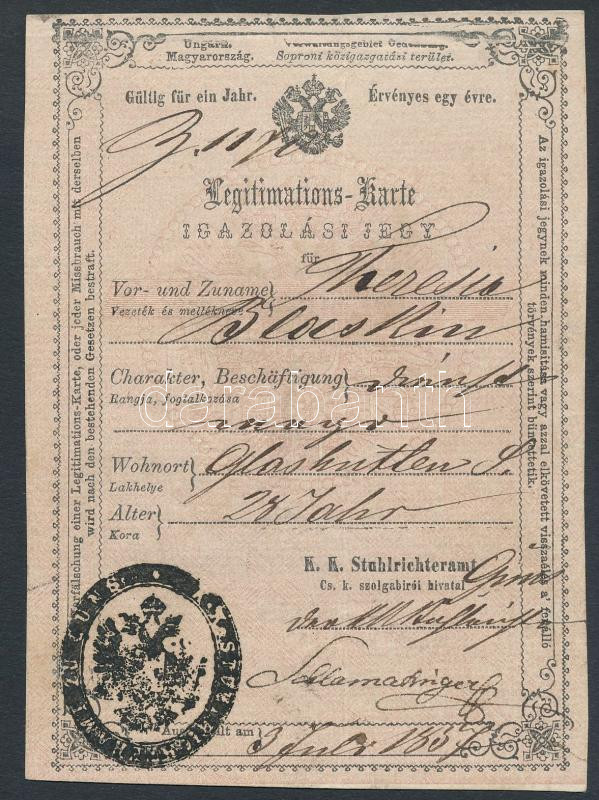 Ungarn. Verwaltungsgebiet Oedenburg.
Magyarország. Soproni közigazgatási terület.
Gültig für ein Jahr. Érvényes egy évre.
Legitimations-Karte
IGAZOLÁSI JEGY
für
Vor- und Zuname Theresia
Vezeték és mellékneve
Charakter, Beschäftigung Dienst
Rangja, foglalkozása
magd
darabanth
Wohnort Glashütten
Lakhelye
Alter 24 Jahr
Kora
K. K. Stuhlrichteramt Güns
Cs. k. szolgabirói hivatal
Ausgestellt am 3 Juli 1857
erfälschung einer Legitimations-Karte, oder jeder Missbrauch mit derselben
wird nach den bestehenden Gesetzen bestraft.
Az igazolási jegynek minden hamisítása vagy azzal elkövetett visszaélés a' fenálló
törvények szerint büntettetik.